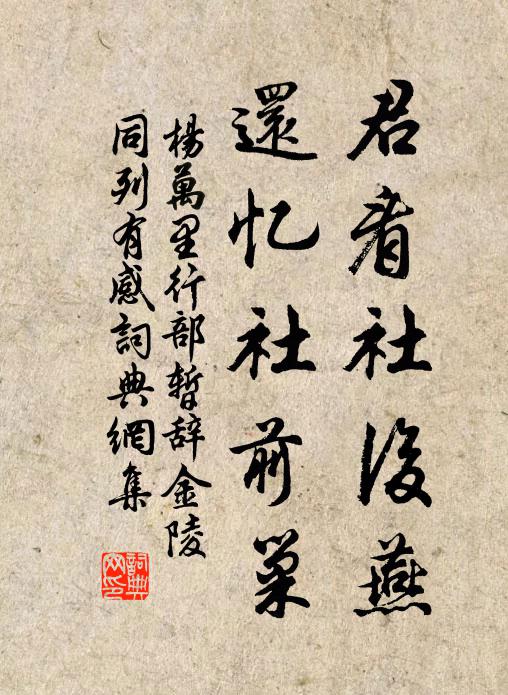 君看社後燕
還忆社前巢
楊萬里行部暫辞金陵
同列有感詞典網集
詞典网印